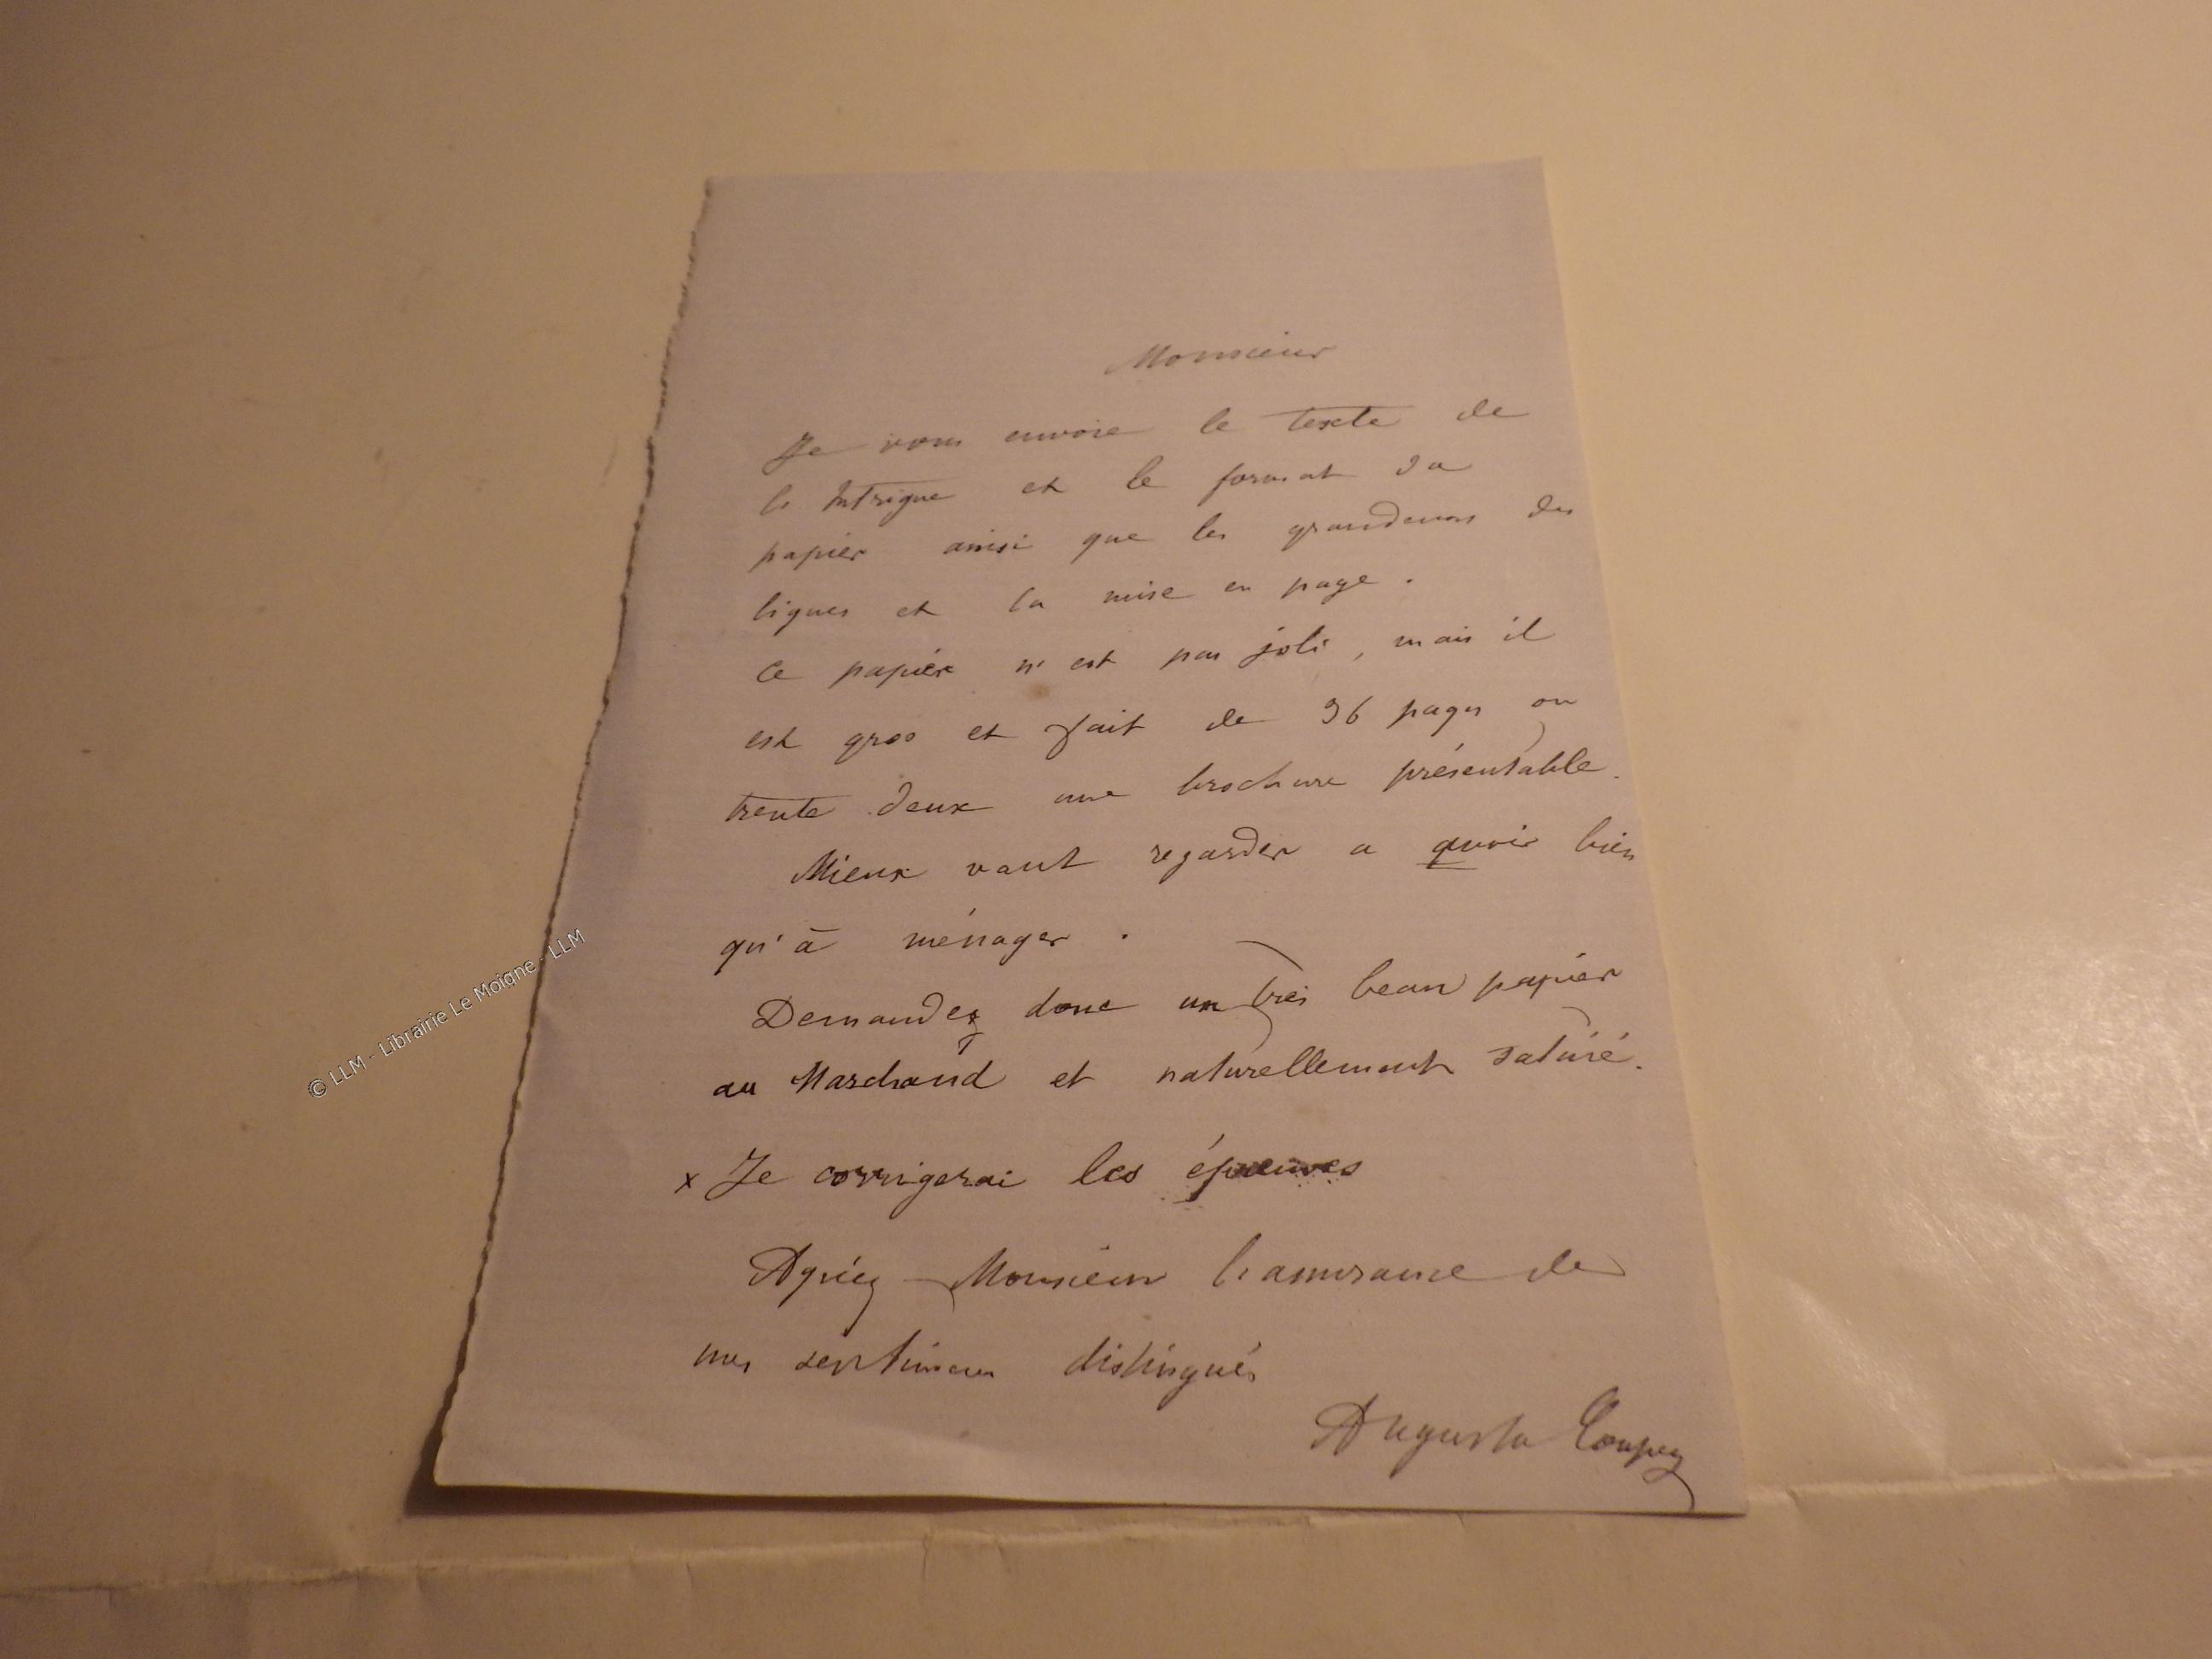 Monsieur
Je vous envoie le texte de
l'Intrigue et le format du
papier ainsi que les grandeurs des
lignes et la mise en page.
Ce papier n'est pas joli, mais il
est gros et fait de 36 pages ou
trente deux une brochure présentable.
Mieux vaut regarder a avoir bien
qu'à ménager.
Demandez donc un très beau papier
au Marchand et naturellement satiné.
x Je corrigerai les épreuves
Agréez Monsieur l'assurance de
mes sentimens distingués
Augusta
© LLM - Librairie Le Moigne - LLM